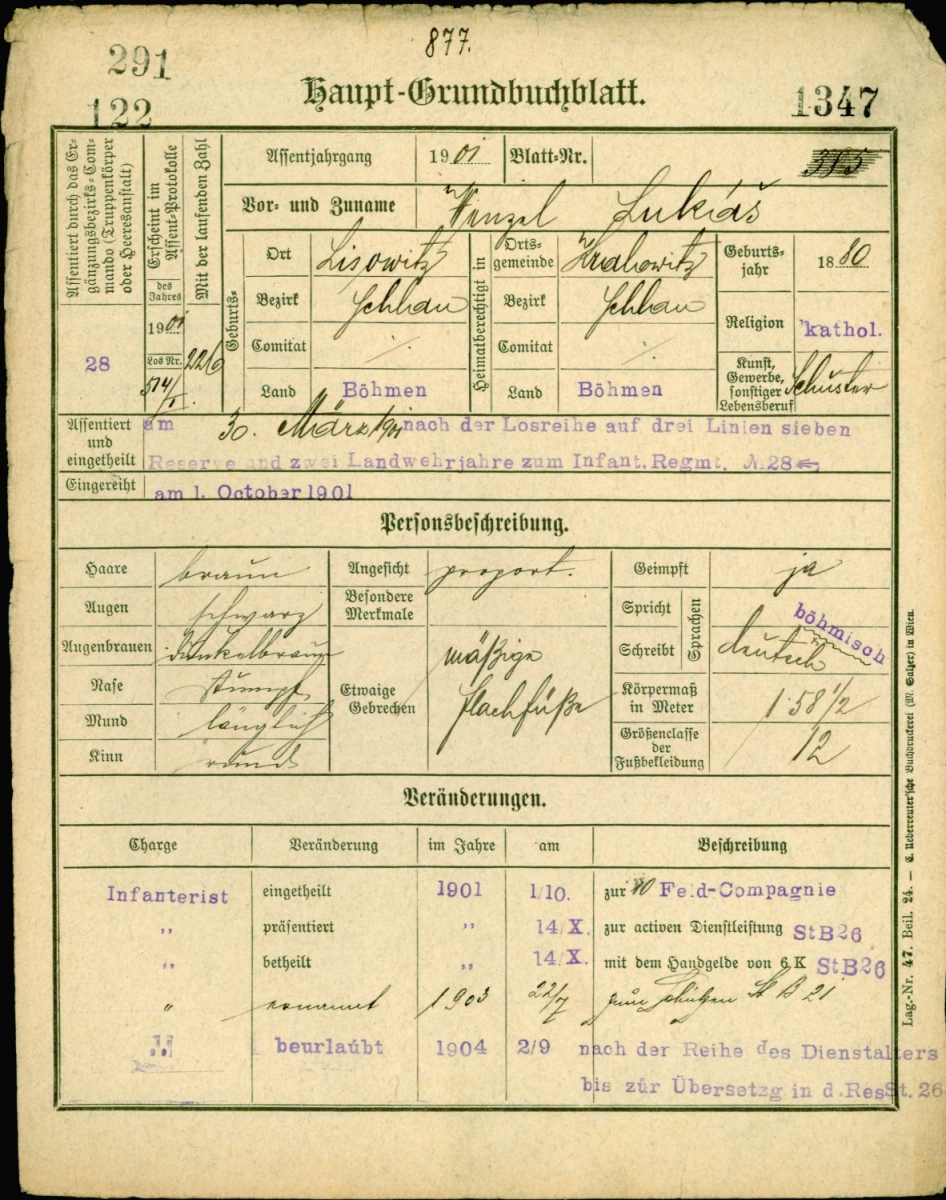 877.
291
Haupt-Grundbuchblatt.
122
1347
Assentiert durch das Ergänzungsbezirks-Commando (Truppenkörper oder Heeresanstalt)
28
Erscheint im Assent-Protokolle
des Jahres
1901
Los Nr.
Mit der laufenden Zahl
Assentjahrgang 1901 Blatt-Nr.
Vor- und Zuname Wenzel Lukáš
Geburts-
Ort Lisowitz
Bezirk Schlan
Comitat ·/.
Land Böhmen
Heimatberechtigt in
Ortsgemeinde Hrabowitz
Bezirk Schlan
Comitat ·/.
Land Böhmen
Geburtsjahr 1880
Religion kathol.
Kunst, Gewerbe, sonstiger Lebensberuf Schuster
Assentiert und eingetheilt
am 30. März 1901 nach der Losreihe auf drei Linien sieben
Reserve und zwei Landwehrjahre zum Infant. Regmt. №28
Eingereiht am 1. October 1901
Personsbeschreibung.
Haare braun
Augen schwarz
Augenbrauen dunkelbraun
Nase stumpf
Mund länglich
Kinn rund
Angesicht proport.
Besondere Merkmale
Etwaige Gebrechen mäßige Flachfüße
Geimpft ja
Spricht
Schreibt
Sprachen
böhmisch
deutsch
Körpermaß in Meter 1·58 1/2
Größenclasse der Fußbekleidung 12
Veränderungen.
Charge Veränderung im Jahre am Beschreibung
Infanterist eingetheilt 1901 1/10. zur 10 Feld-Compagnie
„ präsentiert „ 14/X. zur activen Dienstleistung StB26
„ betheilt „ 14/X. mit dem Handgelde von 6 K StB26
„ ernannt 1903 22/7 zum Schützen St B 21
beurlaubt 1904 2/9 nach der Reihe des Dienstalters
bis zur Übersetzg in d. Res St. 26
Lag.-Nr. 47. Beil. 24. — C. Ueberreuter'sche Buchdruckerei (M. Salzer) in Wien.